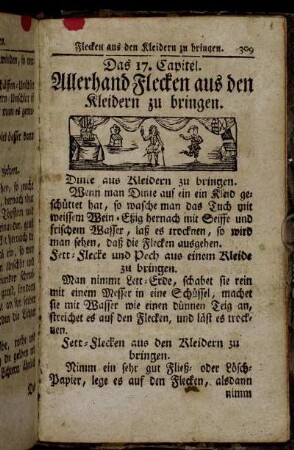 Flecken aus den Kleidern zu bringen. 309
Das 17. Capitel.
Allerhand Flecken aus den
Kleidern zu bringen.
Dinte aus Kleidern zu bringen.
Wenn man Dinte auf ein ein Kind ge-
schüttet hat, so wasche man das Tuch mit
weissem Wein-Eßig hernach mit Seiffe und
frischem Wasser, laß es trocknen, so wird
man sehen, daß die Flecken ausgehen.
Fett-Flecke und Pech aus einem Kleide
zu bringen.
Man nimmt Lett-Erde, schabet sie rein
mit einem Messer in eine Schüssel, machet
sie mit Wasser wie einen dünnen Teig an,
streichet es auf den Flecken, und läst es trock-
nen.
Fett-Flecken aus den Kleidern zu
bringen.
Nimm ein sehr gut Fließ- oder Lösch-
Papier, lege es auf den Flecken, alsdann
nimm